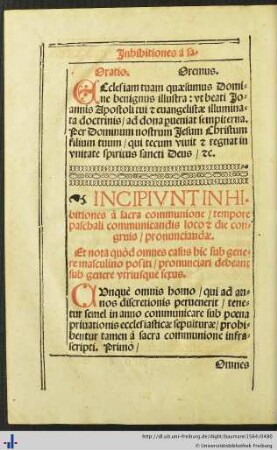 Inhibitiones à sa-
Oratio. Oremus.
Ecclesiam tuam quæsumus Domi-
ne benignus illustra: vt beati Jo-
annis Apostoli tui & euangelistæ illumina-
ta doctrinis, ad dona pueniat sempiterna.
Per Dominum nostrum Jesum Christum
filium tuum / qui tecum viuit & regnat in
vnitate spiritus sancti Deus / &c.
INCIPIVNT INHI-
bitiones à sacra communione / tempore
paschali communicandis loco & die con-
gruis / pronunciandæ.
Et nota quòd omnes casus hic sub gene
re masculino positi / pronunciari debeant
sub genere vtriusque sexus.
Cunque omnis homo / qui ad an-
nos discretionis peruenerit / tene-
tur semel in anno communicare sub pœna
priuationis ecclesiasticæ sepulturæ / prohi-
bentur tamen à sacra communione infra-
scripti. Primò /
Omnes
http://dl.ub.uni-freiburg.de/diglit/baumann1564/0480
© Universitätsbibliothek Freiburg